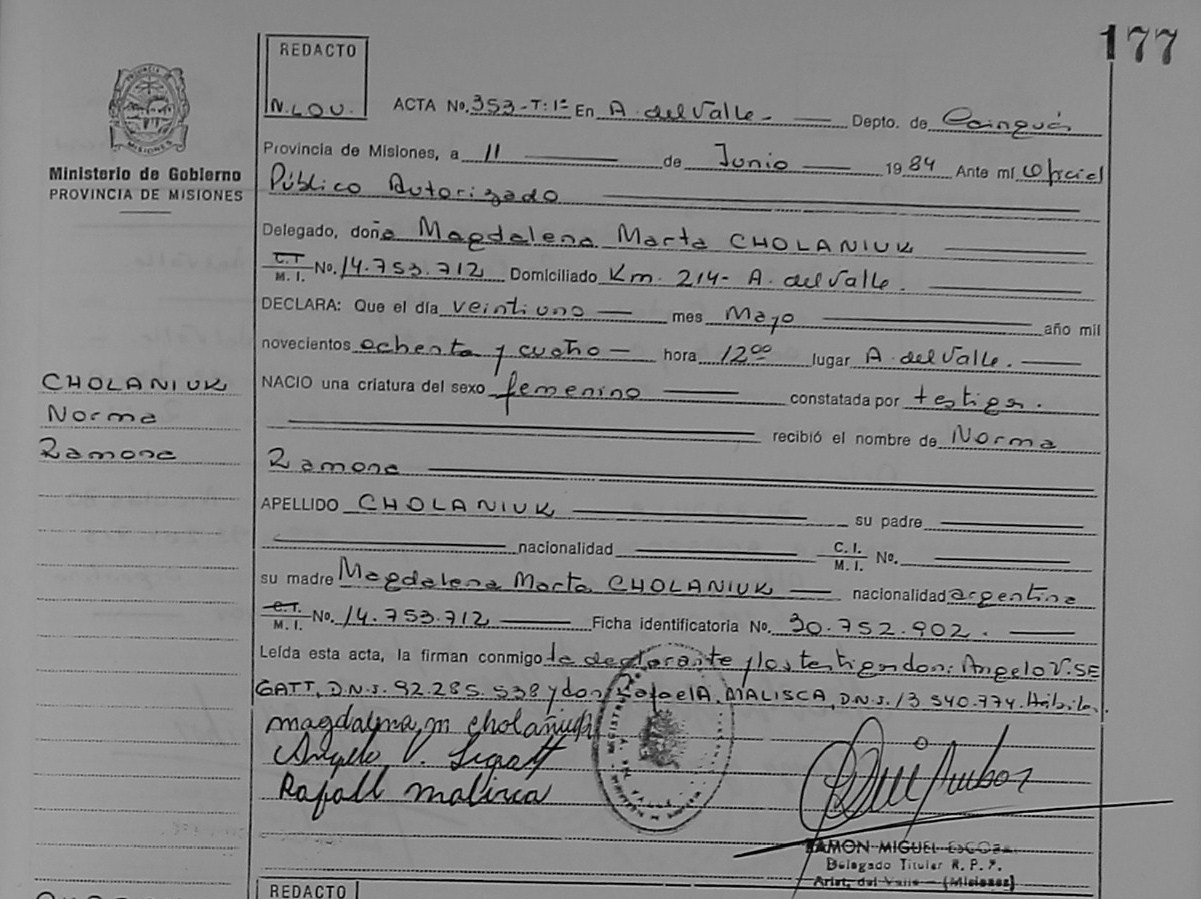 177
REDACTO
N.LOU.
ACTA No. 353-T:1º En A. del Valle. Depto. de Cainguás
Provincia de Misiones, a 11 de Junio 1984 Ante mí Oficial
Público Autorizado
Delegado, doña Magdalena Marta CHOLANIUK
C.I. M.I. No. 14.753.712 Domiciliado Km. 214- A. del Valle.
DECLARA: Que el día veintiuno mes Mayo año mil
novecientos ochenta y cuatro hora 12,00 lugar A. del Valle.
NACIO una criatura del sexo femenino constatada por testigos.
recibió el nombre de Norma
Ramona
APELLIDO CHOLANIUK su padre
nacionalidad C. I. M. I. No.
su madre Magdalena Marta CHOLANIUK nacionalidad argentina
M. I. No. 14.753.712 Ficha identificatoria No. 30.752.902.
Leída esta acta, la firman conmigo la declarante y los testigos don: Angelo V. SE
GATT, D.N.I. 92.285.538 y don Rafael A. MALISCA, D.N.I. 13 540.774. Hábiles.
magdalena m cholañiuk
Angelo V. Segatt
Rafaell malisca
RAMON MIGUEL
Delegado Titular R. P. P.
Arist. del Valle - (Misiones)
REDACTO
PROVINCIA DE MISIONES
Ministerio de Gobierno
PROVINCIA DE MISIONES
CHOLANIUK
Norma
Ramona